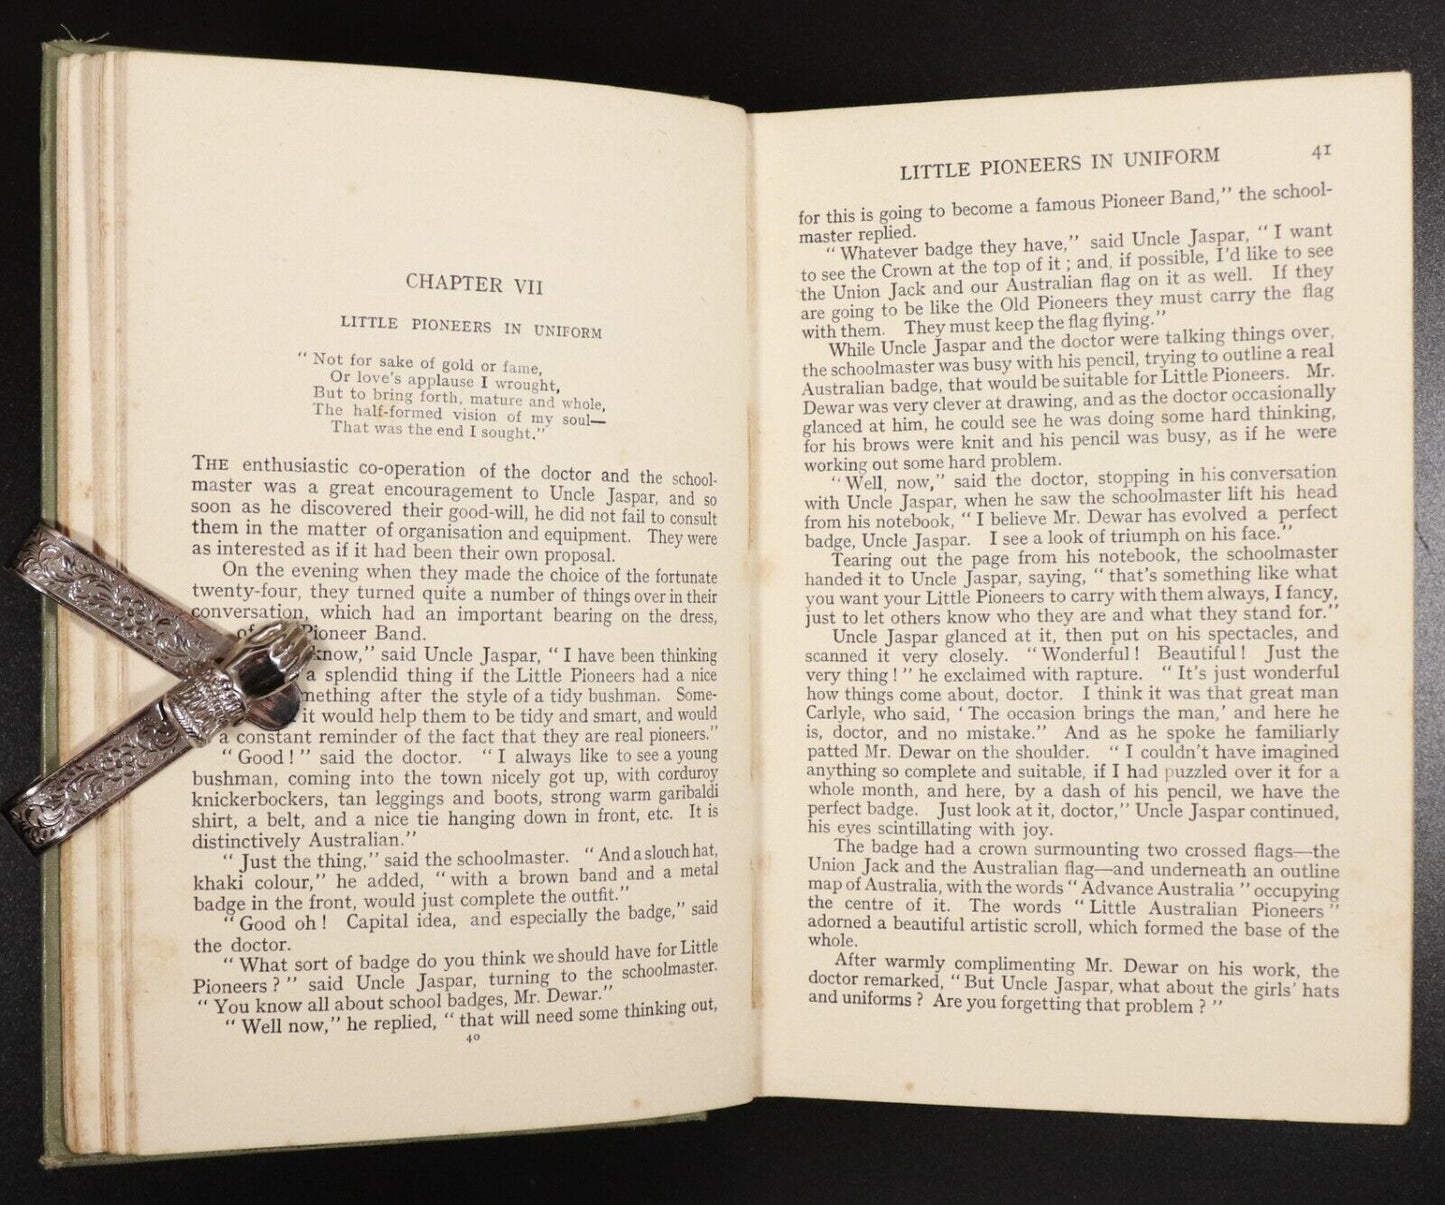 CHAPTER VII
LITTLE PIONEERS IN UNIFORM
“ Not for sake of gold or fame,
Or love’s applause I wrought,
But to bring forth, mature and whole,
The half-formed vision of my soul—
That was the end I sought.”
THE enthusiastic co-operation of the doctor and the school-
master was a great encouragement to Uncle Jaspar, and so
soon as he discovered their good-will, he did not fail to consult
them in the matter of organisation and equipment. They were
as interested as if it had been their own proposal.
On the evening when they made the choice of the fortunate
twenty-four, they turned quite a number of things over in their
conversation, which had an important bearing on the dress,
of Pioneer Band.
know,” said Uncle Jaspar, “ I have been thinking
a splendid thing if the Little Pioneers had a nice
mething after the style of a tidy bushman. Some-
it would help them to be tidy and smart, and would
a constant reminder of the fact that they are real pioneers.”
“ Good ! ” said the doctor. “ I always like to see a young
bushman, coming into the town nicely got up, with corduroy
knickerbockers, tan leggings and boots, strong warm garibaldi
shirt, a belt, and a nice tie hanging down in front, etc. It is
distinctively Australian.”
“ Just the thing,” said the schoolmaster. “ And a slouch hat,
khaki colour,” he added, “ with a brown band and a metal
badge in the front, would just complete the outfit.”
“ Good oh ! Capital idea, and especially the badge,” said
the doctor.
“ What sort of badge do you think we should have for Little
Pioneers ? ” said Uncle Jaspar, turning to the schoolmaster.
“ You know all about school badges, Mr. Dewar.”
“ Well now,” he replied, “ that will need some thinking out,
40
LITTLE PIONEERS IN UNIFORM 41
for this is going to become a famous Pioneer Band,” the school-
master replied.
“ Whatever badge they have,” said Uncle Jaspar, “ I want
to see the Crown at the top of it ; and, if possible, I’d like to see
the Union Jack and our Australian flag on it as well. If they
are going to be like the Old Pioneers they must carry the flag
with them. They must keep the flag flying.”
While Uncle Jaspar and the doctor were talking things over,
the schoolmaster was busy with his pencil, trying to outline a real
Australian badge, that would be suitable for Little Pioneers. Mr.
Dewar was very clever at drawing, and as the doctor occasionally
glanced at him, he could see he was doing some hard thinking,
for his brows were knit and his pencil was busy, as if he were
working out some hard problem.
“ Well, now,” said the doctor, stopping in his conversation
with Uncle Jaspar, when he saw the schoolmaster lift his head
from his notebook, “ I believe Mr. Dewar has evolved a perfect
badge, Uncle Jaspar. I see a look of triumph on his face.”
Tearing out the page from his notebook, the schoolmaster
handed it to Uncle Jaspar, saying, “ that’s something like what
you want your Little Pioneers to carry with them always, I fancy,
just to let others know who they are and what they stand for.”
Uncle Jaspar glanced at it, then put on his spectacles, and
scanned it very closely. “ Wonderful ! Beautiful ! Just the
very thing ! ” he exclaimed with rapture. “ It’s just wonderful
how things come about, doctor. I think it was that great man
Carlyle, who said, ‘ The occasion brings the man,’ and here he
is, doctor, and no mistake.” And as he spoke he familiarly
patted Mr. Dewar on the shoulder. “ I couldn’t have imagined
anything so complete and suitable, if I had puzzled over it for a
whole month, and here, by a dash of his pencil, we have the
perfect badge. Just look at it, doctor,” Uncle Jaspar continued,
his eyes scintillating with joy.
The badge had a crown surmounting two crossed flags—the
Union Jack and the Australian flag—and underneath an outline
map of Australia, with the words “ Advance Australia ” occupying
the centre of it. The words “ Little Australian Pioneers ”
adorned a beautiful artistic scroll, which formed the base of the
whole.
After warmly complimenting Mr. Dewar on his work, the
doctor remarked, “ But Uncle Jaspar, what about the girls’ hats
and uniforms ? Are you forgetting that problem ? ”